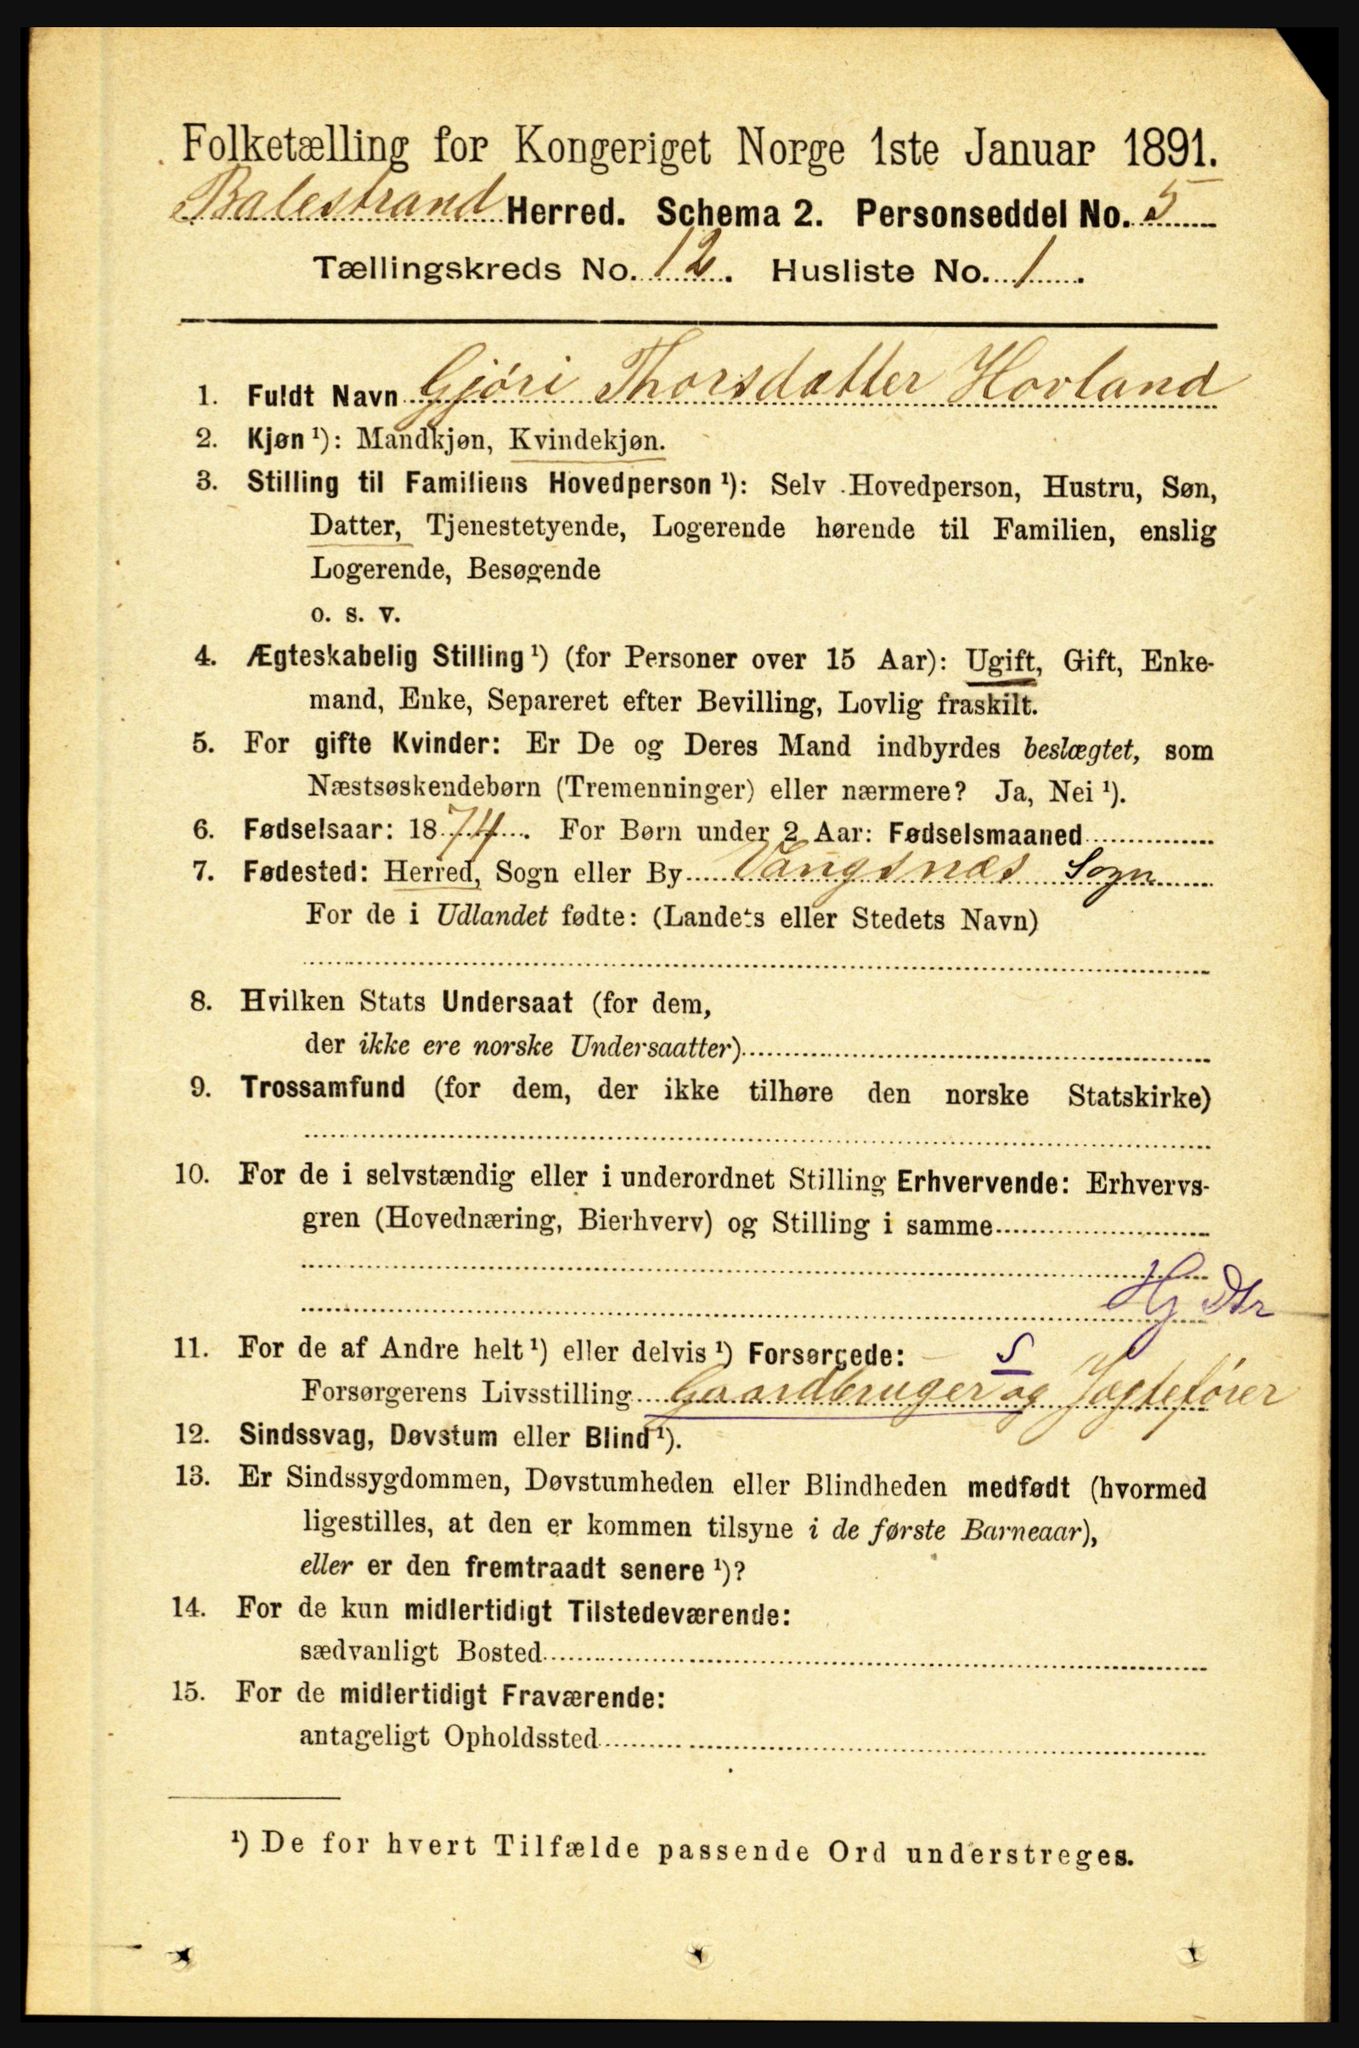 Folketælling for Kongeriget Norge 1ste Januar 1891.
Balestrand Herred. Schema 2. Personseddel No. 5
Tællingskreds No. 12. Husliste No. 1.
1. Fuldt Navn Gjøri Thorsdatter Hovland
2. Kjøn ¹): Mandkjøn, Kvindekjøn.
3. Stilling til Familiens Hovedperson ¹): Selv Hovedperson, Hustru, Søn,
Datter, Tjenestetyende, Logerende hørende til Familien, enslig
Logerende, Besøgende
o. s. v.
4. Ægteskabelig Stilling ¹) (for Personer over 15 Aar): Ugift, Gift, Enke-
mand, Enke, Separeret efter Bevilling, Lovlig fraskilt.
5. For gifte Kvinder: Er De og Deres Mand indbyrdes beslægtet, som
Næstsøskendebørn (Tremenninger) eller nærmere? Ja, Nei ¹).
6. Fødselsaar: 1874. For Børn under 2 Aar: Fødselsmaaned
7. Fødested: Herred, Sogn eller By Vangsnæs Sogn
For de i Udlandet fødte: (Landets eller Stedets Navn)
8. Hvilken Stats Undersaat (for dem,
der ikke ere norske Undersaatter)
9. Trossamfund (for dem, der ikke tilhøre den norske Statskirke)
10. For de i selvstændig eller i underordnet Stilling Erhvervende: Erhvervs-
gren (Hovednæring, Bierhverv) og Stilling i samme
Hj Dtr
11. For de af Andre helt ¹) eller delvis ¹) Forsørgede: S
Forsørgerens Livsstilling Gaardbruger og Jægtefører
12. Sindssvag, Døvstum eller Blind ¹).
13. Er Sindssygdommen, Døvstumheden eller Blindheden medfødt (hvormed
ligestilles, at den er kommen tilsyne i de første Barneaar),
eller er den fremtraadt senere ¹)?
14. For de kun midlertidigt Tilstedeværende:
sædvanligt Bosted
15. For de midlertidigt Fraværende:
antageligt Opholdssted
¹) De for hvert Tilfælde passende Ord understreges.